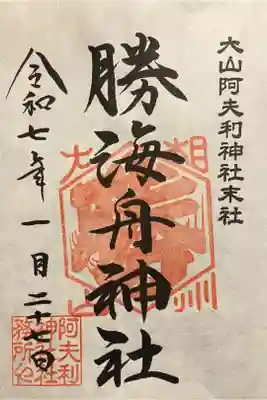 大山阿夫利神社末社
勝海舟神社
令和七年一月二十七日
相州
大山
阿夫利
神社社
務所印